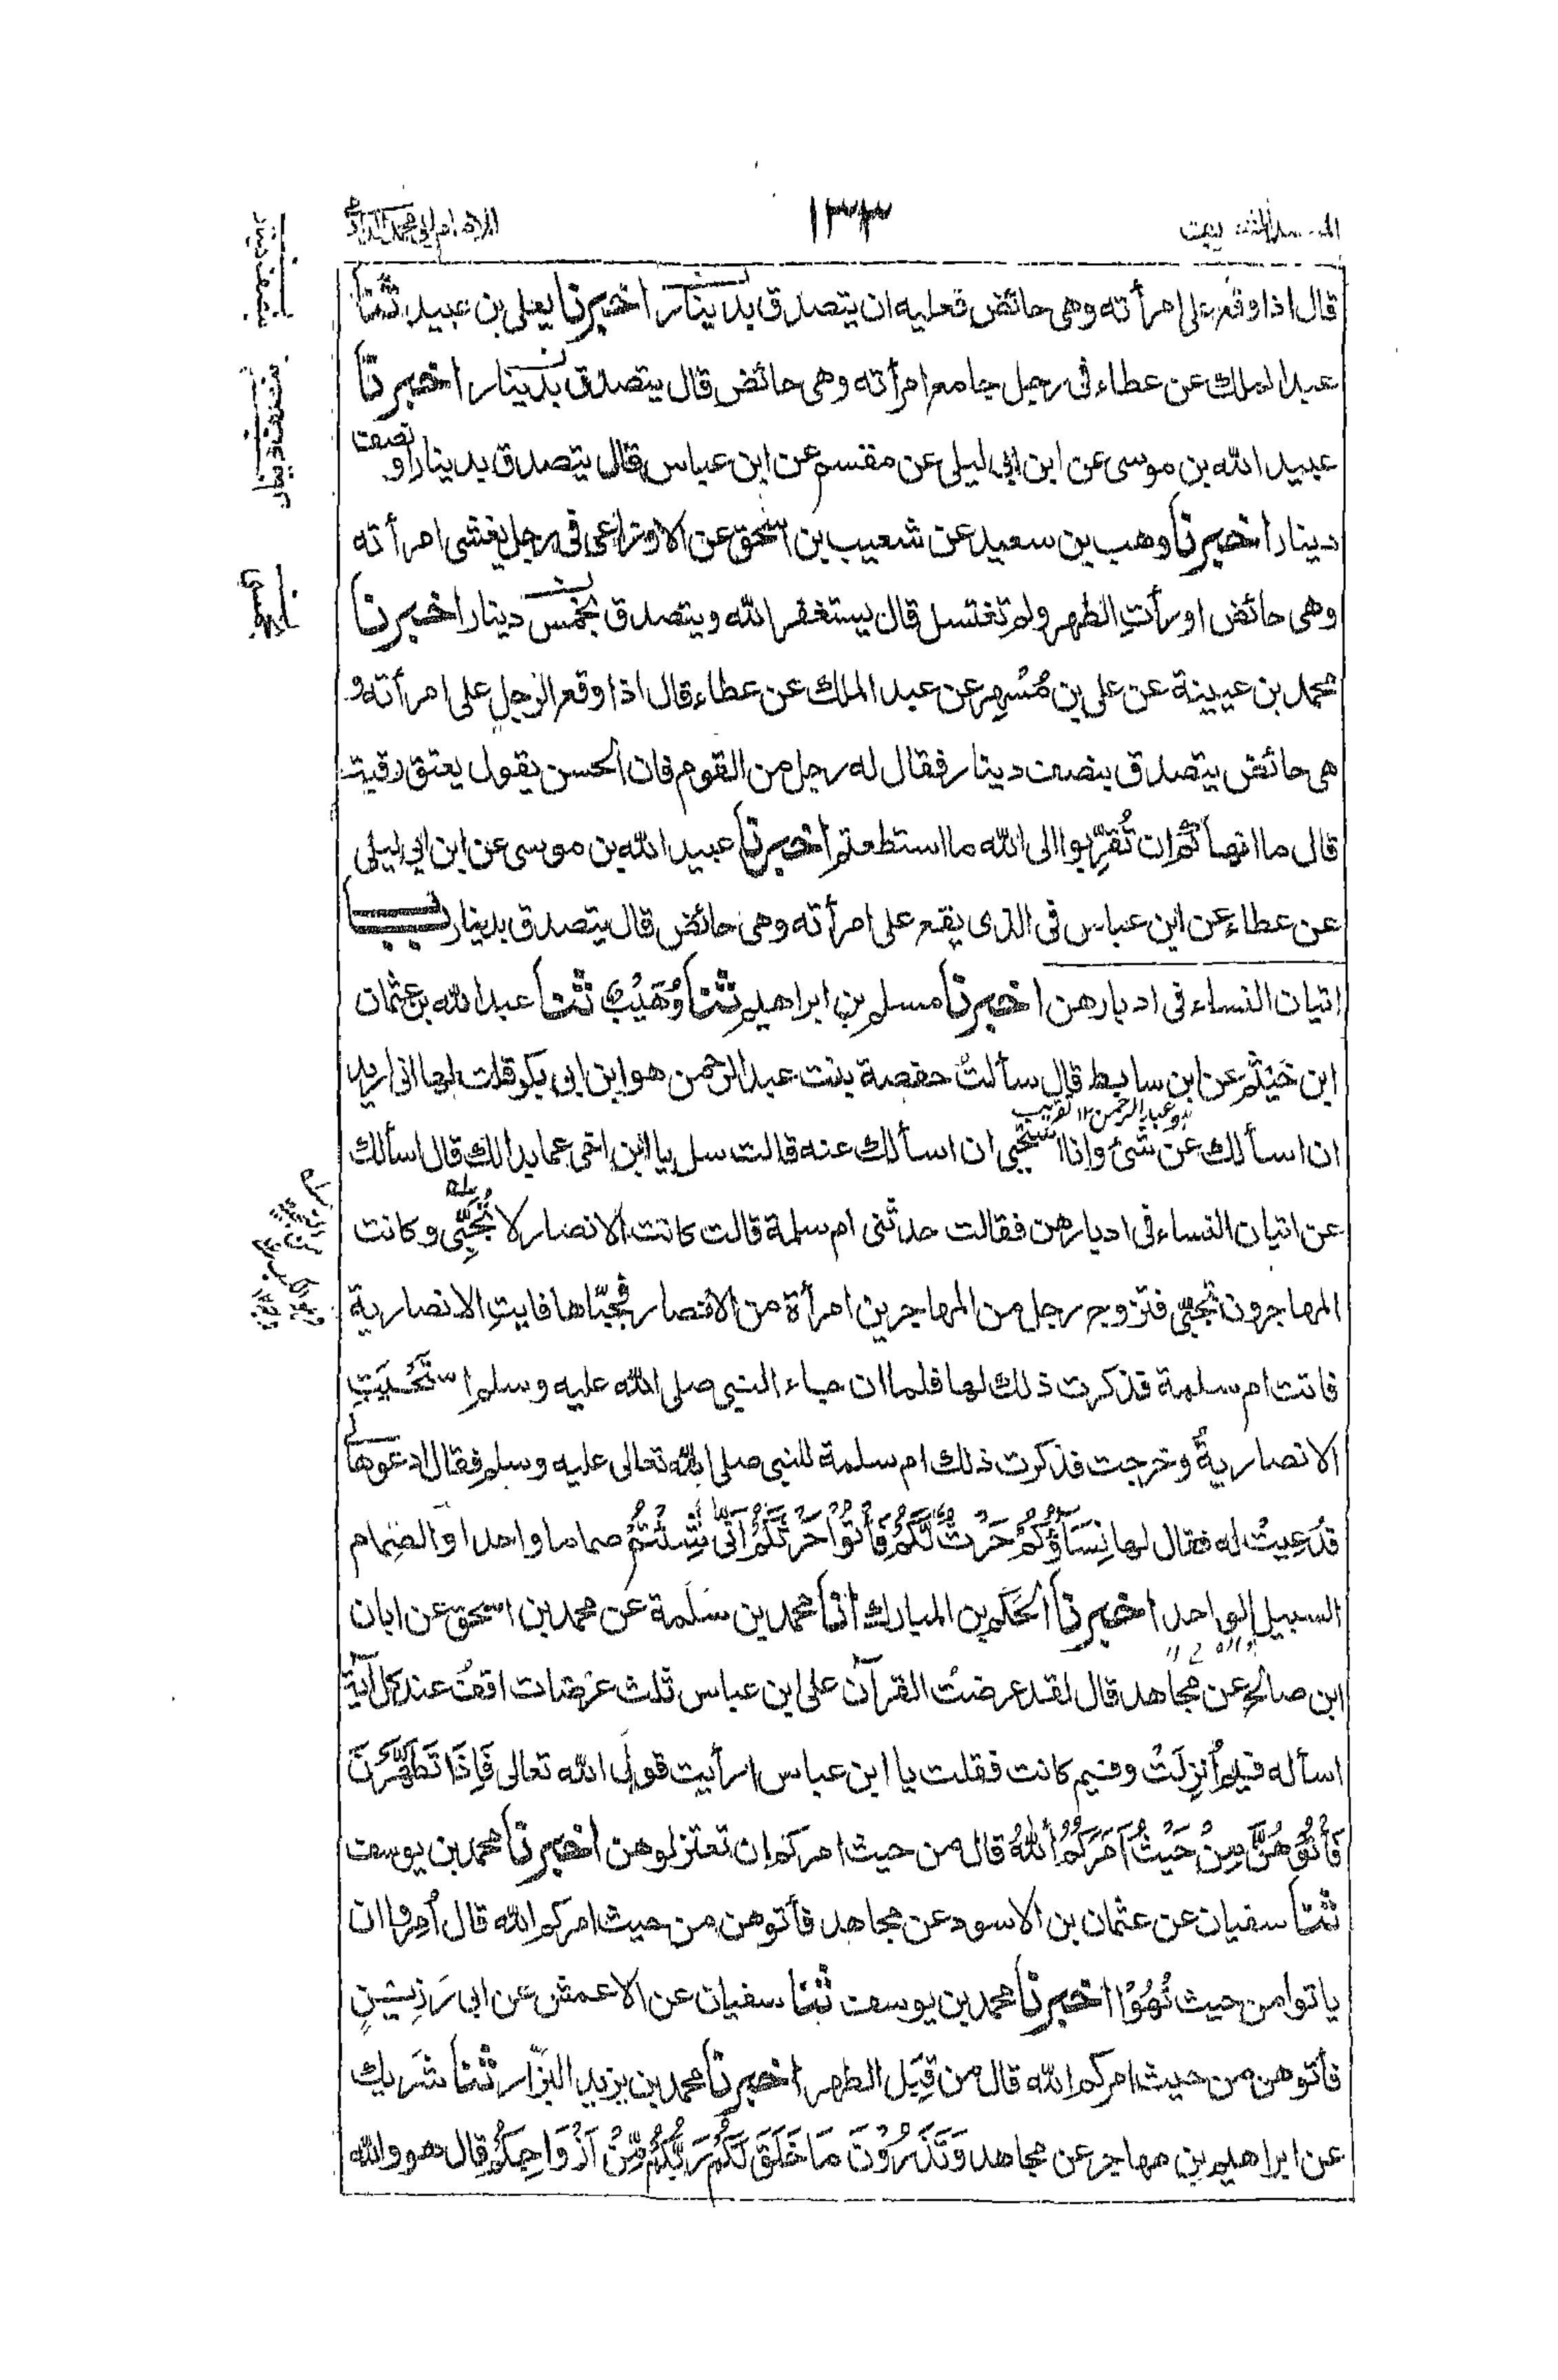 ١٣٣
قال اذا وقع على امرأته وهى حائض فعليه ان يتصدق بدينار اخبرنا يعلى بن عبيد ثنا
عبد الملك عن عطاء فى رجل جامع امرأته وهى حائض قال يتصدق بدينار اخبرنا
عبيد الله بن موسى عن ابن ابى ليلى عن مقسم عن ابن عباس قال يتصدق بدينار او نصف
دينار اخبرنا وهب بن سعيد عن شعيب بن اسحق عن الاوزاعى فى رجل يغشى امرأته
وهى حائض او رأت الطهر ولم تغتسل قال يستغفر الله ويتصدق بخمس دينار اخبرنا
محمد بن عيينة عن على بن مُسْهِر عن عبد الملك عن عطاء قال اذا وقع الرجل على امرأته و
هى حائض يتصدق بنصف دينار فقال له رجل من القوم فان الحسن يقول يعتق رقبة
قال ما انهاكم ان تُقَرِّبوا الى الله ما استطعتم اخبرنا عبيد الله بن موسى عن ابن ابى ليلى
عن عطاء عن ابن عباس فى الذى يقع على امرأته وهى حائض قال يتصدق بدينار باب
اتيان النساء فى ادبارهن اخبرنا مسلم بن ابراهيم ثنا وُهَيْبٌ ثنا عبد الله بن عثمان
ابن خَيْثم عن ابن سابط قال سألتُ حفصة بنت عبد الرحمن هو ابن ابى بكر قلت لها انى اريد
ان اسألك عن شئ وانا استحيى ان اسألك عنه قالت سل يا ابن اخى عما بدالك قال اسألك
عن اتيان النساء فى ادبارهن فقالت حدثنى ام سلمة قالت كانت الانصار لا تُجَبِّى وكانت
المهاجرون تجبّى فتزوج رجل من المهاجرين امرأة من الانصار فجبّاها فابتِ الانصارية
فاتت ام سلمة فذكرت ذلك لها فلما ان جاء النبى صلى الله عليه وسلم استَحْيَيَتِ
الانصاريةُ وخرجت فذكرت ذلك ام سلمة للنبى صلى الله تعالى عليه وسلم فقال ادعوها لى
فدُعِيتْ له فقال لها نِسَآؤُكُمْ حَرْثٌ لَّكُمْ فَأْتُوْا حَرْثَكُمْ اَنّٰى شِئْتُمْ صماما واحدا والصِمام
السبيل الواحد اخبرنا الحَكَم بن المبارك انا محمد بن سَلَمة عن محمد بن اسحق عن ابان
ابن صالح عن مجاهد قال لقد عرضتُ القرآن على ابن عباس ثلث عَرْضات اقفُ عند كل آية
اسأله فيم اُنزِلَتْ وفيم كانت فقلت يا ابن عباس ارأيت قول الله تعالى فَاِذَا تَطَهَّرْنَ
فَأْتُوْهُنَّ مِنْ حَيْثُ اَمَرَكُمُ اللّٰهُ قال من حيث امركم ان تعتزلوهن اخبرنا محمد بن يوسف
ثنا سفيان عن عثمان بن الاسود عن مجاهد فأتوهن من حيث امركم الله قال اُمِروا ان
ياتوا من حيث نُهُوْا اخبرنا محمد بن يوسف ثنا سفيان عن الاعمش عن ابى رَزِيْنٍ
فأتوهن من حيث امركم الله قال من قِبَل الطهر اخبرنا محمد بن يزيد البزّار ثنا شَريك
عن ابراهيم بن مهاجر عن مجاهد وَتَذَرُوْنَ مَا خَلَقَ لَكُمْ رَبُّكُمْ مِّنْ اَزْوَاجِكُمْ قال هو والله